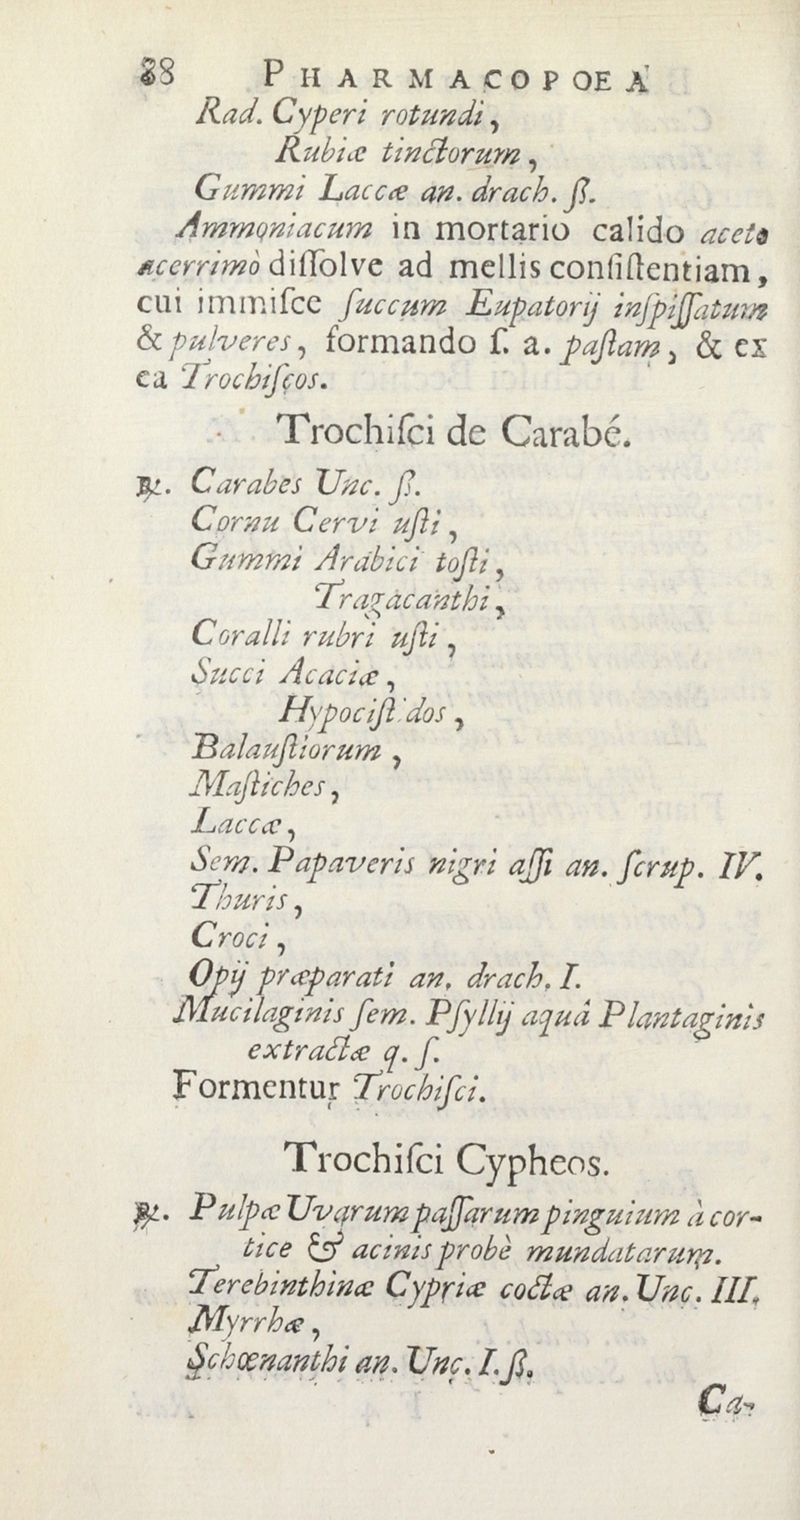 88 PHARMACOPOEA
Rad. Cyperi rotundi,
Rubiæ tinctorum,
Gummi Laccæ an. drach. ß.
Ammoniacum in mortario calido aceto
acerrimò diſſolve ad mellis conſiſtentiam,
cui immiſce ſuccum Eupatorij inſpiſſatum
& pulveres, formando ſ. a. paſtam, & ex
ea Trochiſcos.
Trochiſci de Carabé.
℞. Carabes Unc. ß.
Cornu Cervi uſti,
Gummi Arabici toſti,
Tragacanthi,
Coralli rubri uſti,
Succi Acaciæ,
Hypociſtidos,
Balauſtiorum,
Maſtiches,
Laccæ,
Sem. Papaveris nigri aſſi an. ſcrup. IV.
Thuris,
Croci,
Opij præparati an. drach. I.
Mucilaginis ſem. Pſyllij aquâ Plantaginis
extractæ q. ſ.
Formentur Trochiſci.
Trochiſci Cypheos.
℞. Pulpæ Uvarum paſſarum pinguium à cor-
tice & acinis probè mundatarum.
Terebinthinæ Cypriæ coctæ an. Unc. III.
Myrrhæ,
Schœnanthi an. Unc. I. ß.
Ca-